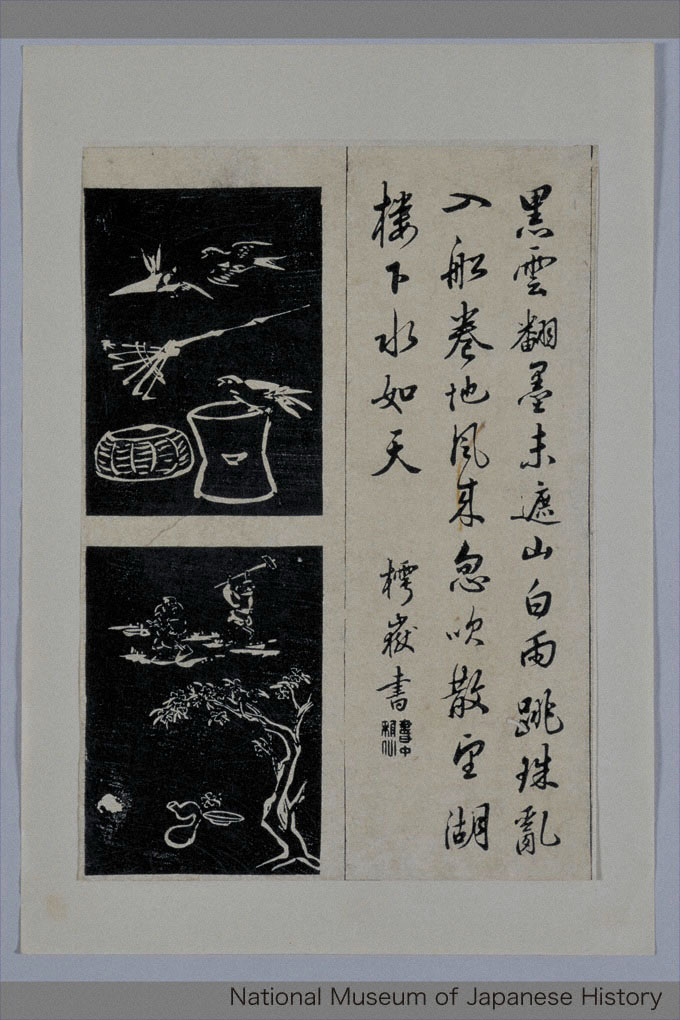 黒雲翻墨未遮山白雨跳珠亂
入船巻地風来忽吹散望湖
楼下水如天
樗嶽書
National Museum of Japanese History